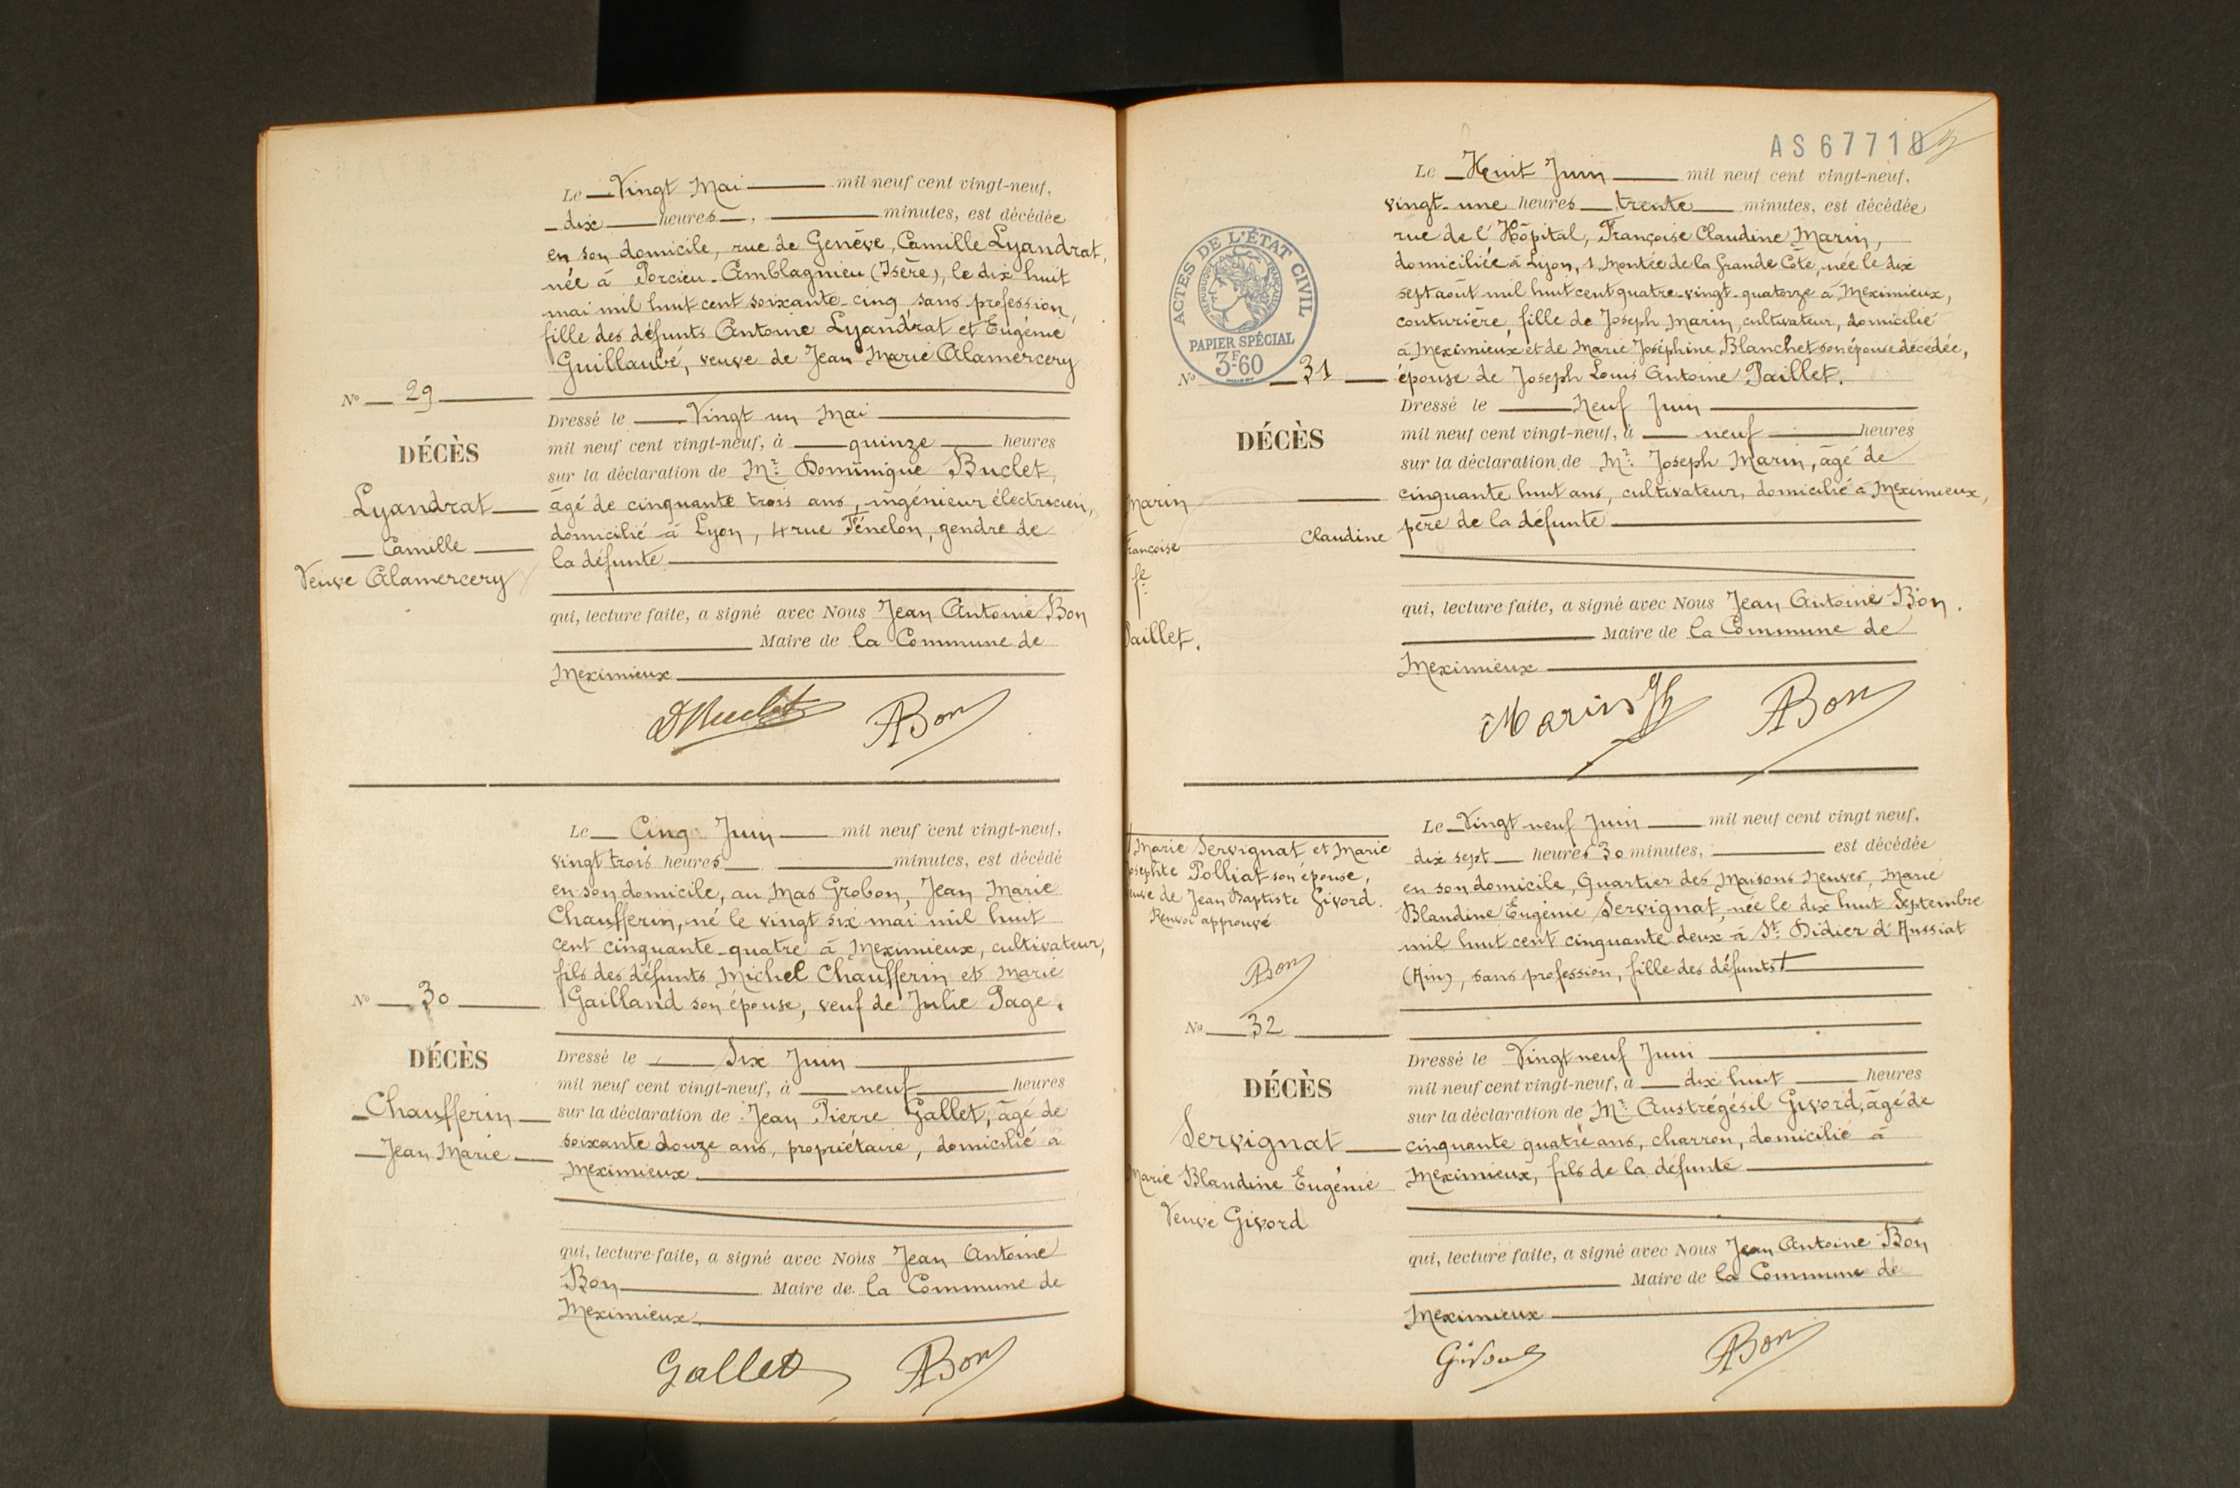 Le Vingt Mai mil neuf cent vingt-neuf,
dix heures, minutes, est décédée
en son domicile, rue de Genève, Camille Lyandrat,
née à Porcieu-Amblagnieu (Isère), le dix huit
mai mil huit cent soixante-cinq, sans profession,
fille des défunts Antoine Lyandrat et Eugénie
Guillaubé, veuve de Jean Marie Alamercery
N° 29
DÉCÈS
Lyandrat
Camille
Veuve Alamercery
Dressé le Vingt un Mai
mil neuf cent vingt-neuf, à quinze heures
sur la déclaration de Mr Dominique Buclet,
âgé de cinquante trois ans, ingénieur électricien,
domicilié à Lyon, 4 rue Fénelon, gendre de
la défunte
qui, lecture faite, a signé avec Nous Jean Antoine Bon
Maire de la Commune de
Meximieux
DBuclet ABon
Le Cinq Juin mil neuf cent vingt-neuf,
vingt trois heures minutes, est décédé
en son domicile, au Mas Grobon, Jean Marie
Chaufferin, né le vingt six mai mil huit
cent cinquante-quatre à Meximieux, cultivateur,
fils des défunts Michel Chaufferin et Marie
Gailland son épouse, veuf de Julie Page.
N° 30
DÉCÈS
Chaufferin
Jean Marie
Dressé le Six Juin
mil neuf cent vingt-neuf, à neuf heures
sur la déclaration de Jean Pierre Gallet, âgé de
soixante douze ans, propriétaire, domicilié à
Meximieux
qui, lecture faite, a signé avec Nous Jean Antoine
Bon Maire de la Commune de
Meximieux
Gallet ABon
AS 67710
ACTES DE L'ÉTAT CIVIL
RÉPUBLIQUE FRANÇAISE
PAPIER SPÉCIAL
3F60
Le Huit Juin mil neuf cent vingt-neuf,
vingt-une heures trente minutes, est décédée
rue de l'Hôpital, Françoise Claudine Marin,
domiciliée à Lyon, 1 Montée de la Grande Côte, née le dix
sept août mil huit cent quatre-vingt-quatorze à Meximieux,
couturière, fille de Joseph Marin, cultivateur, domicilié
à Meximieux et de Marie Joséphine Blanchet son épouse décédée,
épouse de Joseph Louis Antoine Paillet.
N° 31
DÉCÈS
Marin
Françoise Claudine
fe
Paillet.
Dressé le Neuf Juin
mil neuf cent vingt-neuf, à neuf heures
sur la déclaration de Mr Joseph Marin, âgé de
cinquante huit ans, cultivateur, domicilié à Meximieux,
père de la défunte
qui, lecture faite, a signé avec Nous Jean Antoine Bon.
Maire de la Commune de
Meximieux
Marin Jh ABon
Le Vingt neuf Juin mil neuf cent vingt neuf,
dix sept heures 30 minutes, est décédée
en son domicile, Quartier des Maisons Neuves, Marie
Blandine Eugénie Servignat, née le dix huit Septembre
mil huit cent cinquante deux à St Didier d'Aussiat
(Ain), sans profession, fille des défunts †
† Marie Servignat et Marie
Josephte Polliat son épouse,
veuve de Jean Baptiste Givord.
Renvoi approuvé
ABon
N° 32
DÉCÈS
Servignat
Marie Blandine Eugénie
Veuve Givord
Dressé le Vingt neuf Juin
mil neuf cent vingt-neuf, à dix huit heures
sur la déclaration de Mr Austrégésil Givord, âgé de
cinquante quatre ans, charron, domicilié à
Meximieux, fils de la défunte
qui, lecture faite, a signé avec Nous Jean Antoine Bon
Maire de la Commune de
Meximieux
Givord ABon